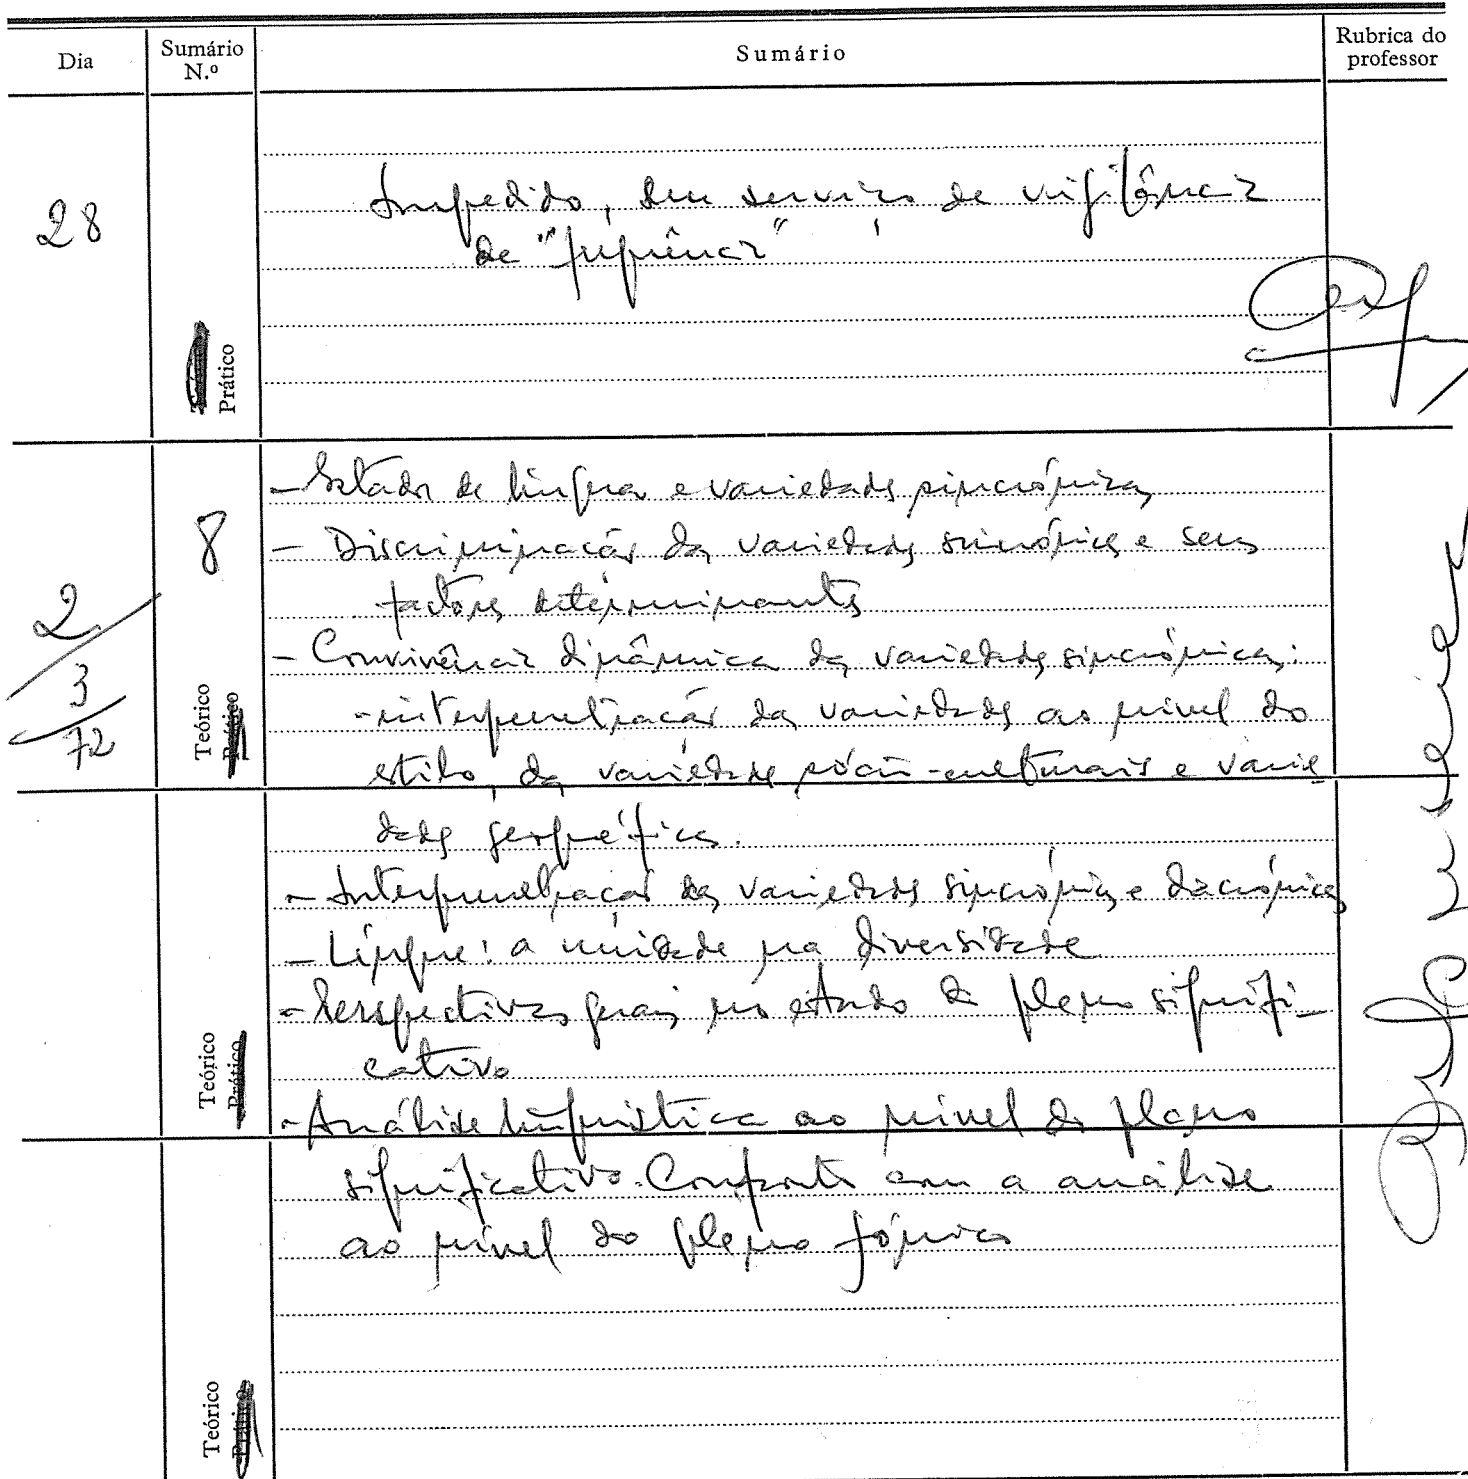 Dia
Sumário
N.º
Sumário
Rubrica do
professor
28
Impedido, em serviço de vigilância
de "frequência"
Prático
8
2
3
72
Teórico
Prático
- Estado de língua e variedades sincrónicas
- Discriminação das variedades sincrónicas e seus
factores determinantes
- Convivência dinâmica das variedades sincrónicas:
- interpenetração das variedades ao nível do
estilo, das variedades sócio-culturais e varie
dades geográficas.
- Interpenetração das variedades sincrónicas e diacrónicas
- Língua: a unidade na diversidade
- Perspectivas gerais no estudo do plano signifi-
cativo
Teórico
Prático
- Análise linguística ao nível do plano
significativo. Confronto com a análise
ao nível do plano fónico
Teórico
Prático